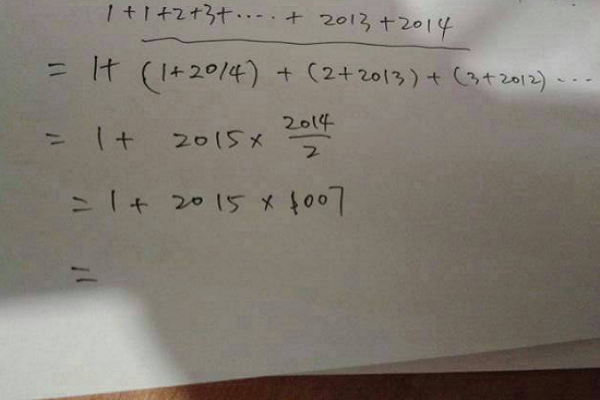 1+1+2+3+····+ 2013+2014
= 1+ (1+2014) + (2+2013) + (3+2012) ···
= 1+ 2015× 2014/2
= 1+ 2015 × 1007
=